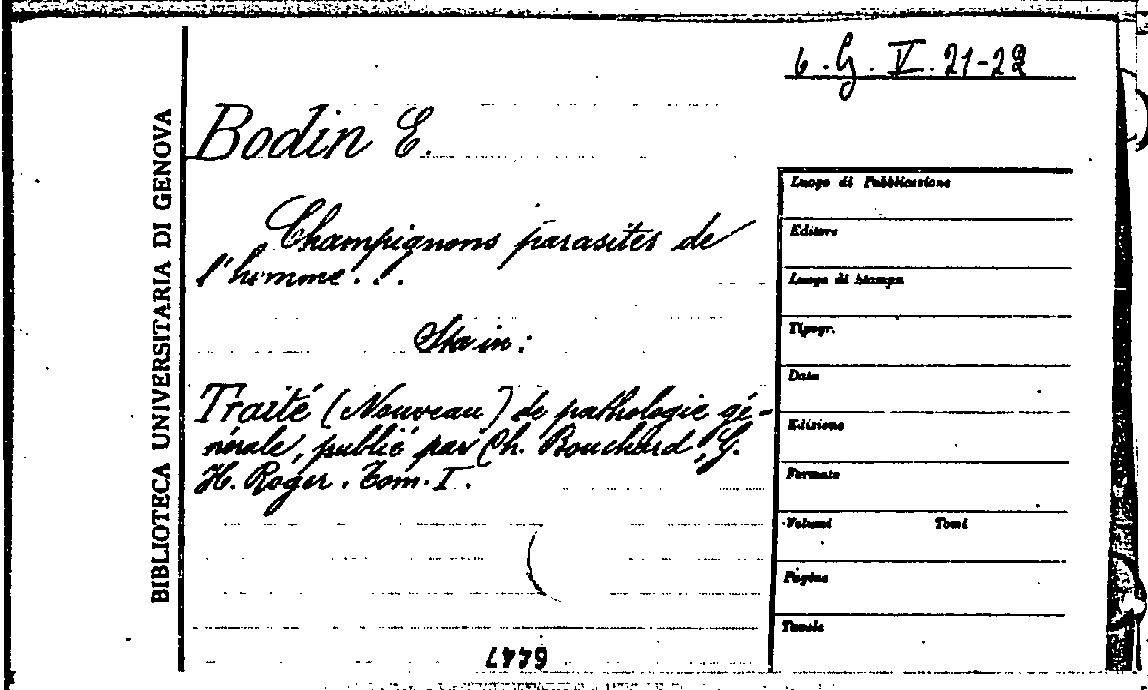 6. G. V. 21-22
BIBLIOTECA UNIVERSITARIA DI GENOVA
Bodin E.
Champignons parasites de
l'homme...
Sta in:
Traité (Nouveau) de pathologie gé-
nérale, publié par Ch. Bouchard, G.
H. Roger. Tom. I.
Luogo di Pubblicazione
Editore
Luogo di Stampa
Tipogr.
Data
Edizione
Formato
Volumi Tomi
Pagine
Tavole
6447